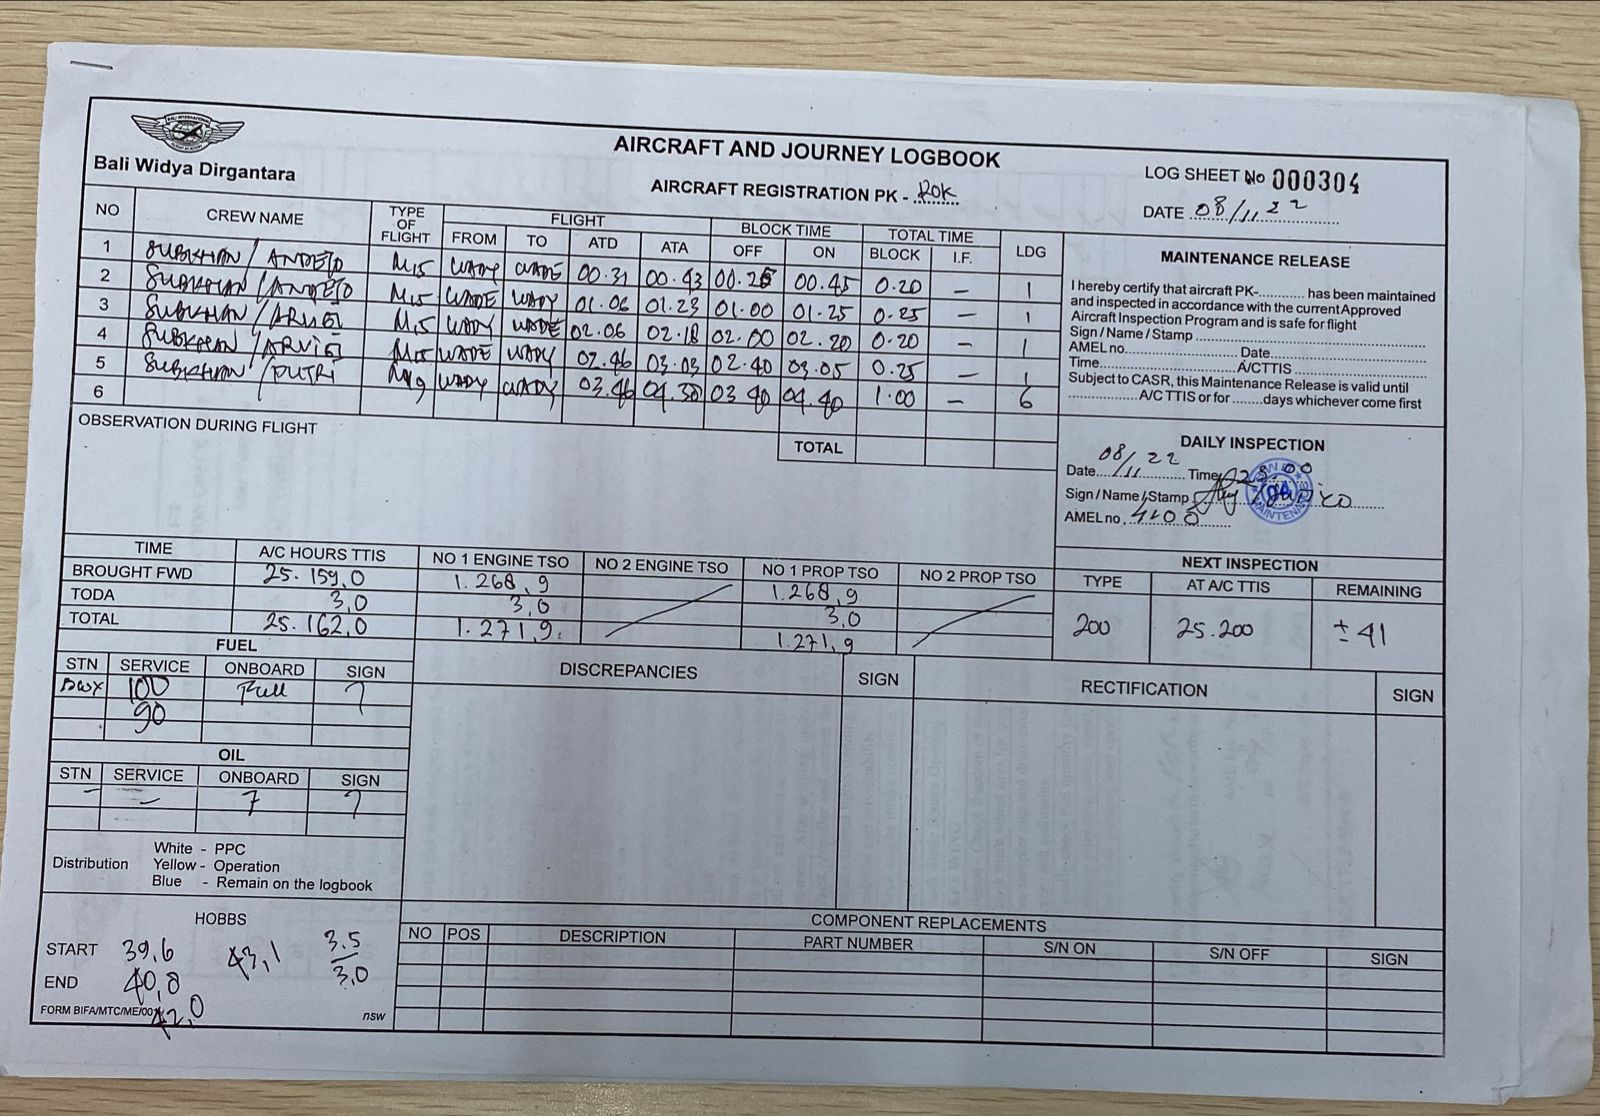 Bali Widya Dirgantara
AIRCRAFT AND JOURNEY LOGBOOK
AIRCRAFT REGISTRATION PK - ROK
LOG SHEET No 000304
DATE 08/11 22
NO CREW NAME TYPE OF FLIGHT FLIGHT BLOCK TIME TOTAL TIME LDG
FROM TO ATD ATA OFF ON BLOCK I.F.
1 SUBKHAN / M15 WADY WADE 00.31 00.43 00.25 00.45 0.20 – 1
2 SUBKHAN / M15 WADE WADY 01.06 01.23 01.00 01.25 0.25 – 1
3 SUBKHAN / M15 WADY WADE 02.06 02.18 02.00 02.20 0.20 – 1
4 SUBKHAN / M15 WADE WADY 02.46 03.03 02.40 03.05 0.25 – 1
5 SUBKHAN / PUTRI WADY WADY 03.46 04.30 03 40 04.40 1.00 – 6
6
TOTAL
OBSERVATION DURING FLIGHT
MAINTENANCE RELEASE
I hereby certify that aircraft PK-............ has been maintained
and inspected in accordance with the currentApproved
Aircraft Inspection Program and is safe for flight
Sign / Name / Stamp
AMEL no. Date
Time A/CTTIS
Subject to CASR, this Maintenance Release is valid until
A/C TTIS or for ........days whichever come first
DAILY INSPECTION
Date 08/11 22 Time 23.00
Sign / Name / Stamp
AMEL no. 4200
TIME A/C HOURS TTIS NO 1 ENGINE TSO NO 2 ENGINE TSO NO 1 PROP TSO NO 2 PROP TSO
BROUGHT FWD 25.159,0 1.268,9 1.268,9
TODA 3,0 3,0 3,0
TOTAL 25.162,0 1.271,9 1.271,9
NEXT INSPECTION
TYPE AT A/C TTIS REMAINING
200 25.200 ± 41
FUEL
STN SERVICE ONBOARD SIGN
BWX 100 Full
90
OIL
STN SERVICE ONBOARD SIGN
– – 7
DISCREPANCIES SIGN RECTIFICATION SIGN
Distribution White - PPC
Yellow - Operation
Blue - Remain on the logbook
HOBBS
START 39,6 43,1 3.5
END 40,8 3,0
42,0
FORM BIFA/MTC/ME/00
nsw
COMPONENT REPLACEMENTS
NO POS DESCRIPTION PART NUMBER S/N ON S/N OFF SIGN